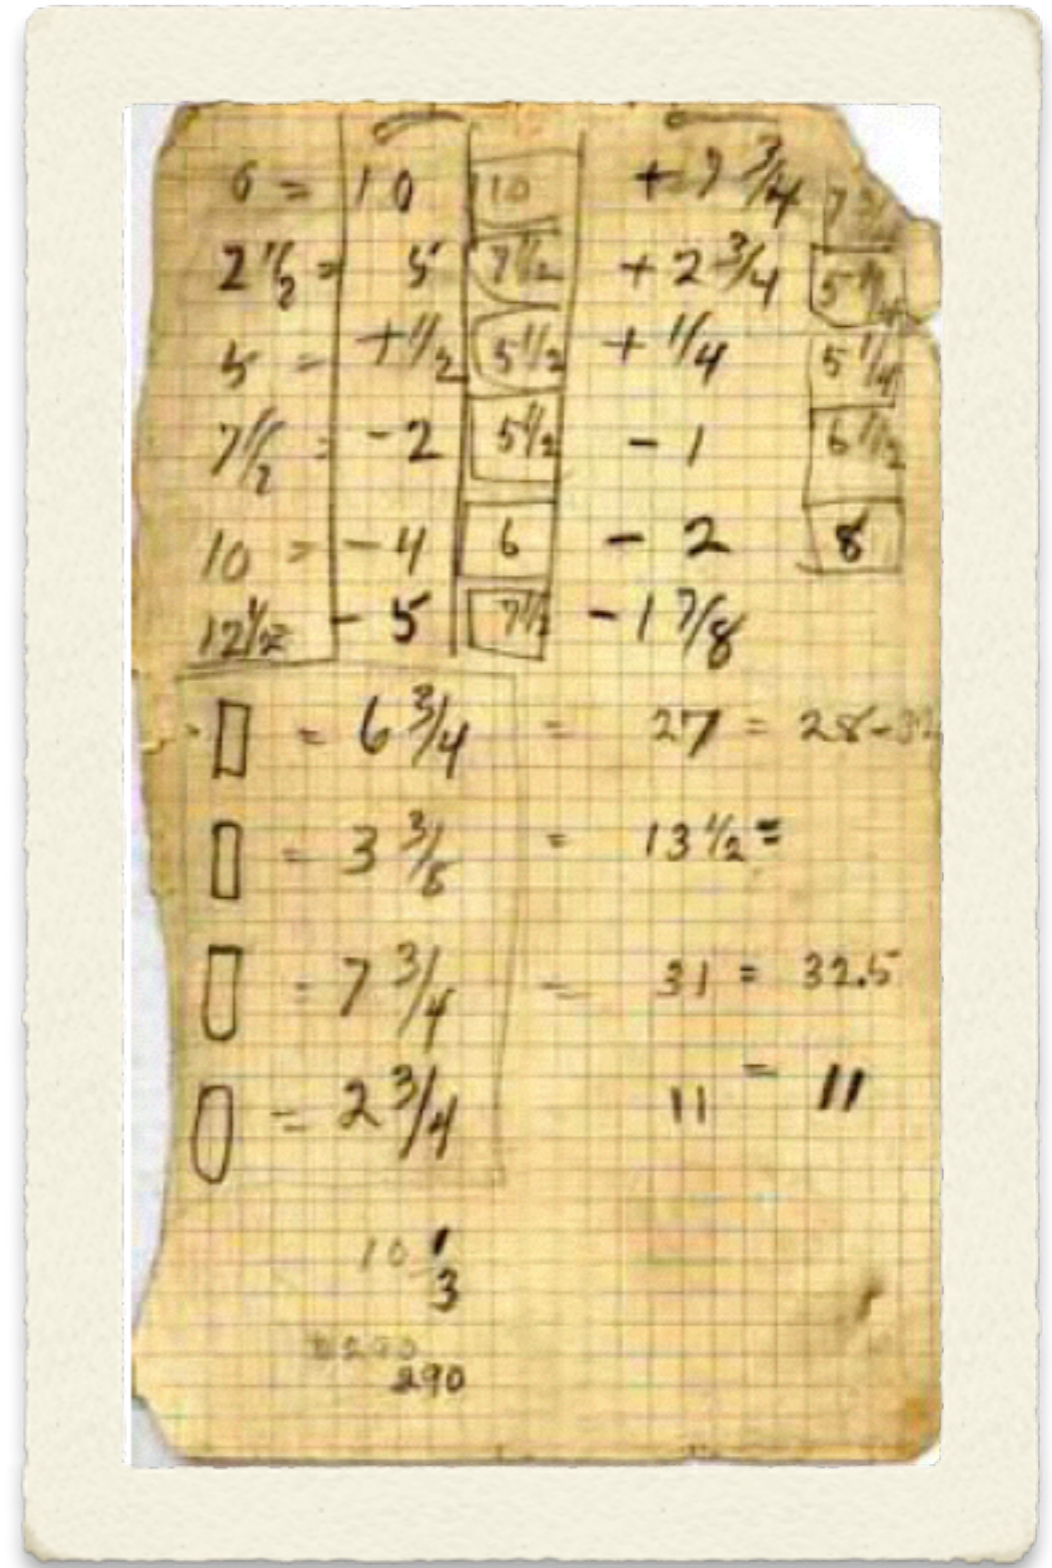 0 = 10 10 + 7 3/4 7 3/4
2 1/2 = 5 7 1/2 + 2 3/4 5 1/4
5 = + 1/2 5 1/2 + 1/4 5 1/4
7 1/2 = - 2 5 1/2 - 1 6 1/2
10 = - 4 6 - 2 8
12 1/2 = - 5 7 1/2 - 1 7/8
= 6 3/4 = 27 = 28-32
= 3 3/8 = 13 1/2 =
= 7 3/4 = 31 = 32.5
= 2 3/4 11 = 11
10 1/3
290